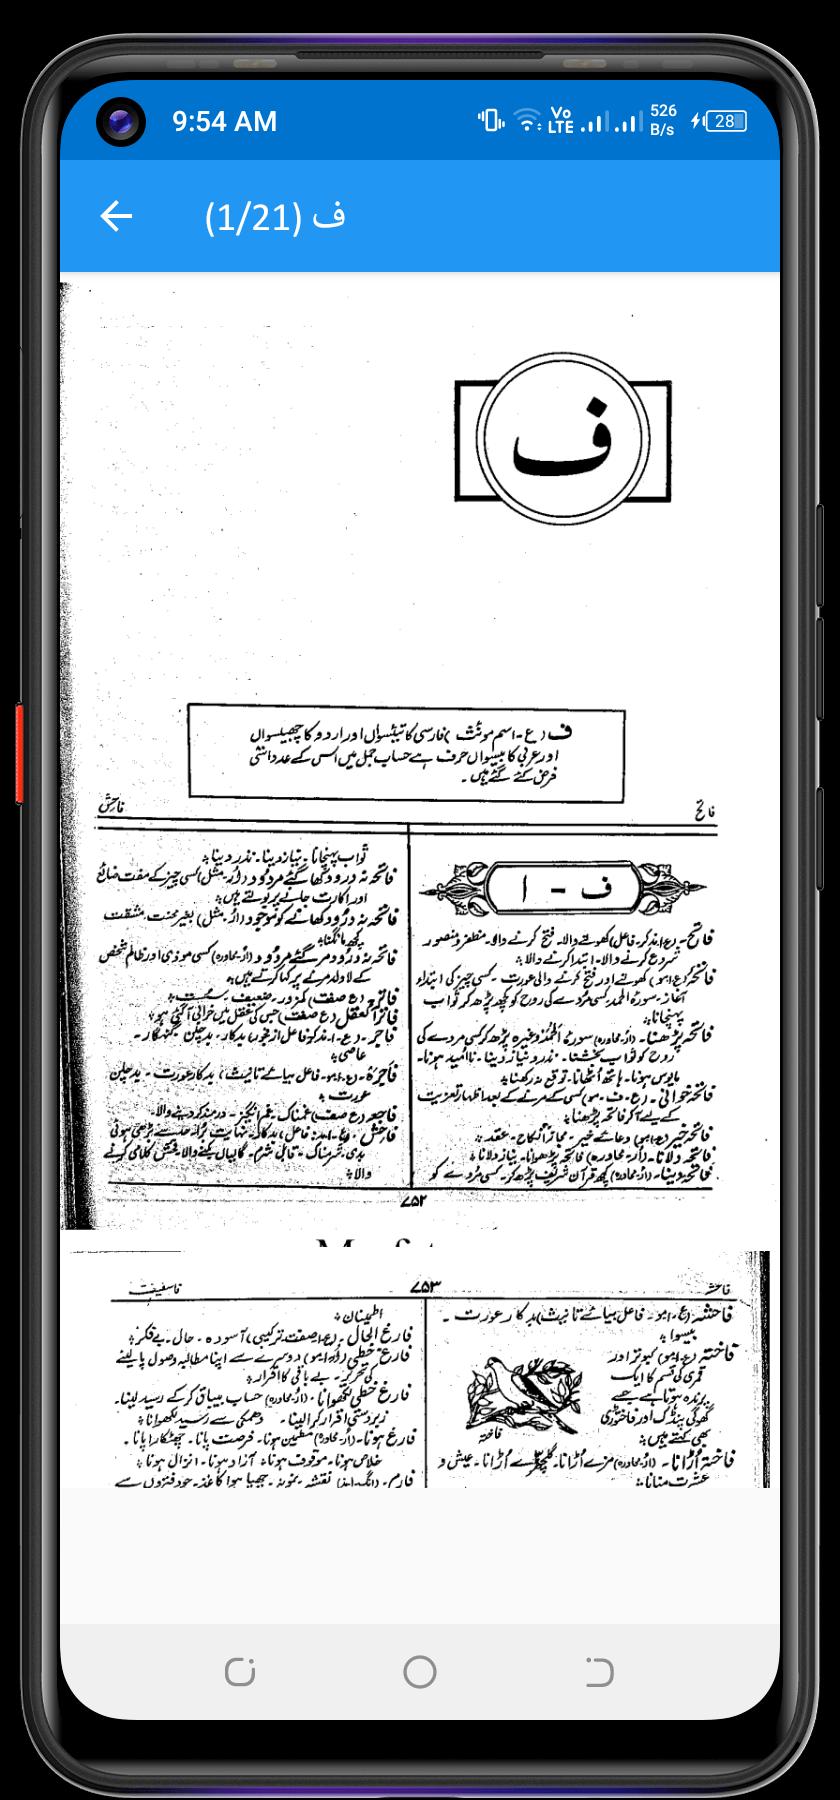 9:54 AM
Vo LTE
526 B/s
28
ف (1/21)
ف
ف (ع۔اسم مونث) فارسی کا تیئیسواں اور اردو کا چھبیسواں
اور عربی کا بیسواں حرف ہے حساب جمل میں اس کے عدد انتی
فرض کئے گئے ہیں۔
فاتح
فاحش
ف - ا
فاتح۔ (ع۔ا۔مذکر۔فاعل) کھولنے والا۔ فتح کرنے والا۔ مظفر و منصور
شروع کرنے والا۔ ابتدا کرنے والا
فاتحہ (ع۔ا۔مو) کھولنے اور فتح کرنے والی عورت۔ کسی چیز کی ابتداء
آغاز۔ سورۂ الحمد۔ کسی مردے کی روح کو کچھ پڑھ کر ثواب
پہنچانا
فاتحہ پڑھنا۔ (اُر۔محاورہ) سورۂ الحمد وغیرہ پڑھ کر کسی مردے کی
روح کو ثواب بخشنا۔ نذر و نیاز دینا۔ ناامید ہونا۔
مایوس ہونا۔ ہاتھ اُٹھانا۔ توقع نہ رکھنا
فاتحہ خوانی۔ (ع۔ف۔مو) کسی کے مرنے کے بعد اظہار تعزیت
کے لیے آ کر فاتحہ پڑھنا
فاتحہ خیر (ع۔ا۔مو) دعائے خیر۔ مجازاً نکاح۔ عقد
فاتحہ دلانا۔ (اُر۔محاورہ) فاتحہ پڑھوانا۔ نیاز دلانا
فاتحہ دینا۔ (اُر۔محاورہ) کچھ قرآن شریف پڑھ کر۔ کسی مردے کو
ثواب پہنچانا۔ نیاز دینا۔ نذر دینا
فاتحہ نہ درود کھا گئے مردود (اُر۔مثل) کسی چیز کے مفت ضائع
اور اکارت جانے پر بولتے ہیں
فاتحہ نہ درود کھانے کو موجود (اُر۔مثل) بغیر محنت۔ مشقت
کچھ مانگنا
فاتحہ نہ درود مر گئے مردود (اُر۔محاورہ) کسی موذی اور ظالم شخص
کے لاولد مرنے پر کہا کرتے ہیں
فاتر۔ (ع صفت) کمزور۔ ضعیف۔ سست
فاتر العقل (ع صفت) جس کی عقل میں خرابی آ گئی ہو
فاجر۔ (ع۔ا۔مذکر۔فاعل از فجور) بدکار۔ بدچلن۔ گنہگار۔
عاصی
فاجرہ۔ (ع۔ا۔مو۔فاعل بیائے تانیث) بدکار عورت۔ بدچلن
عورت
فاجعہ (ع صفت) غمناک۔ غم انگیز۔ دردمند کر دینے والا۔
فاحش۔ (ع۔ا۔مذ۔فاعل) بدکار۔ نہایت بُرا۔ حد سے بڑھی ہوئی
بدی۔ شرمناک۔ قابل شرم۔ گالیاں بکنے والا۔ فحش کلامی کرنے
والا
۷۵۲
فاحشہ
۷۵۳
فاحشہ (ع۔ا۔مو۔فاعل بیائے تانیث) بدکار عورت۔
بیسوا
فاختہ (ع۔ا۔مو) کبوتر اور
قمری کی قسم کا ایک
پرندہ ہوتا ہے جسے
گھوگی پنڈک اور فاختوری
بھی کہتے ہیں
فاختہ
فاختہ اُڑانا۔ (اُر۔محاورہ) مزے اُڑانا۔ گلچھرے اُڑانا۔ عیش و
عشرت منانا
اطمینان
فارغ البال۔ (ع۔صفت ترکیبی) آسودہ۔ حال۔ بے فکر
فارغ خطی (اُر۔ا۔مو) دوسرے سے اپنا مطالبہ وصول پا لینے
کی تحریر۔ بے باقی کا اقرار
فارغ خطی لکھوانا۔ (اُر۔محاورہ) حساب بیباق کر کے رسید لینا۔
زبردستی اقرار کرا لینا۔ دھمکی سے رسید لکھوانا
فارغ ہونا۔ (اُر۔محاورہ) مطمئن ہونا۔ فرصت پانا۔ چھٹکارا پانا۔
خلاص ہونا۔ موقوف ہونا۔ آزاد ہونا۔ انزال ہونا
فارم۔ (انگ۔ا۔مذ) نقشہ۔ نمونہ۔ چھپا ہوا کاغذ۔ جو دفتروں سے